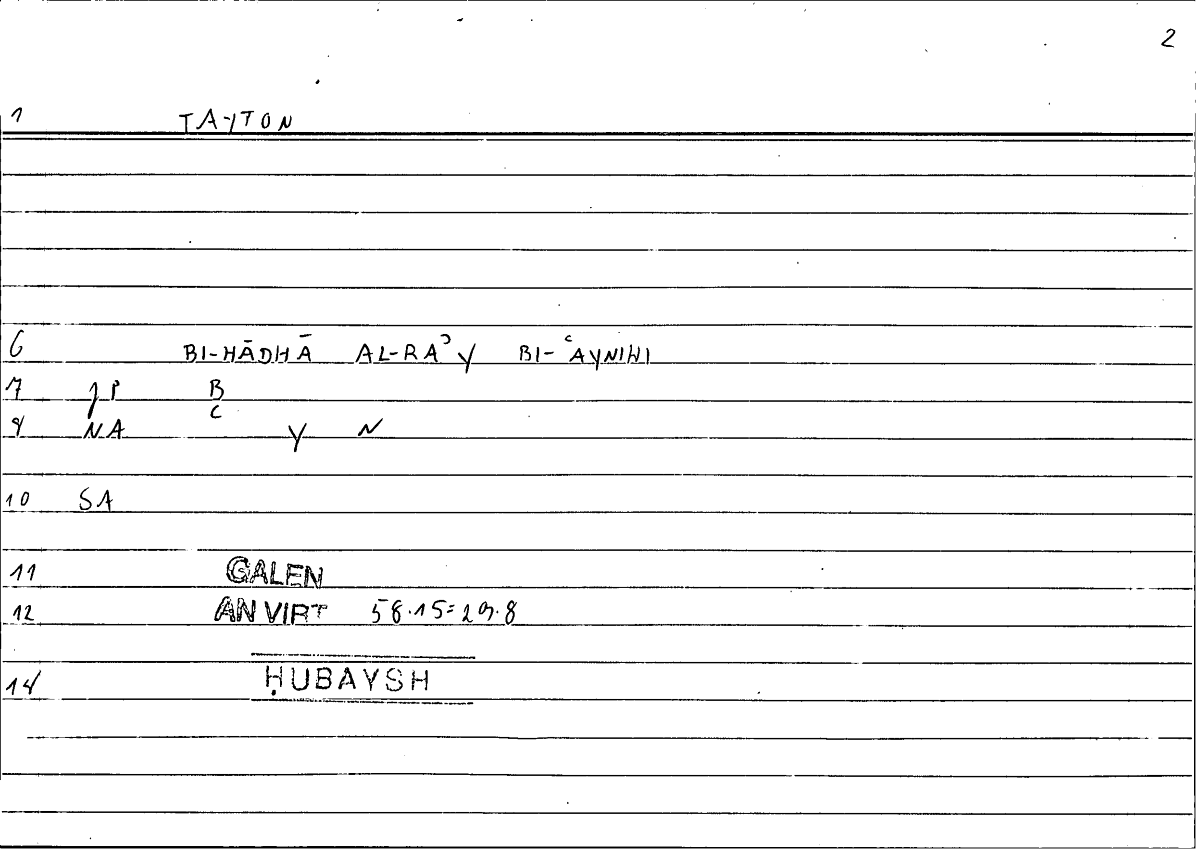 2
1 TAYTON
6 BI-HĀDHĀ AL-RAʾY BI-ʿAYNIHI
7 JP B
C
8 NA Y N
10 SA
11 GALEN
12 AN VIRT 58.15=29.8
14 ḤUBAYSH